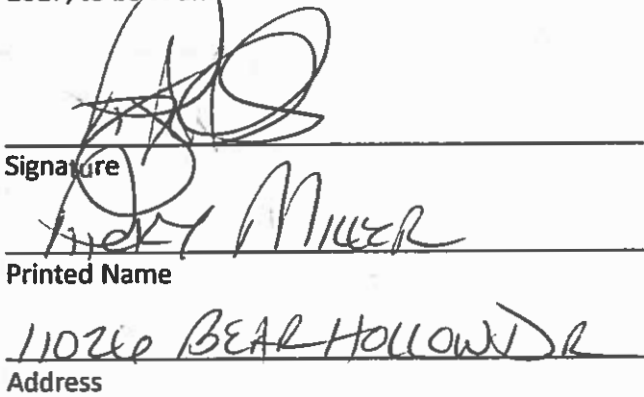 Signature
MILLER
Printed Name
11026 BEAR HOLLOW DR
Address